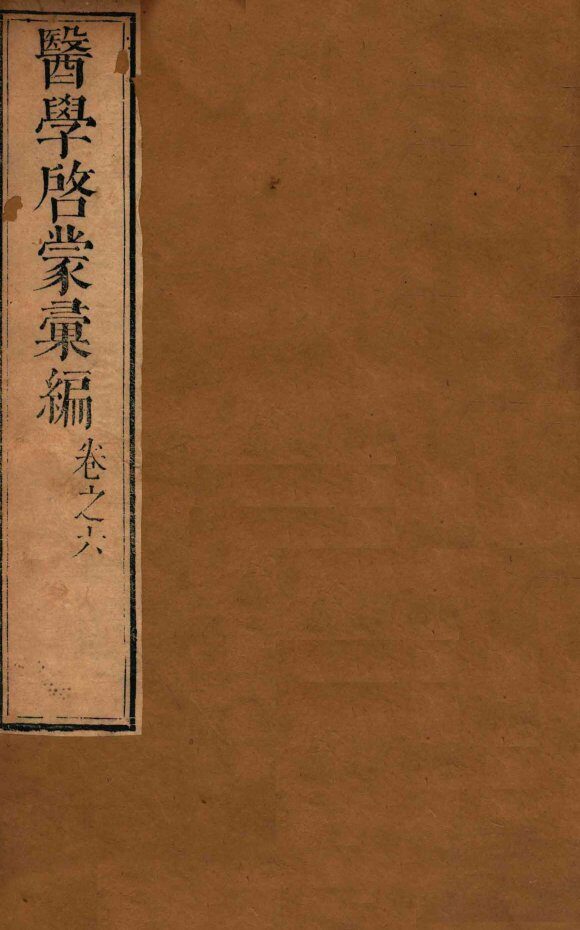 醫學啓蒙彙編
卷之六